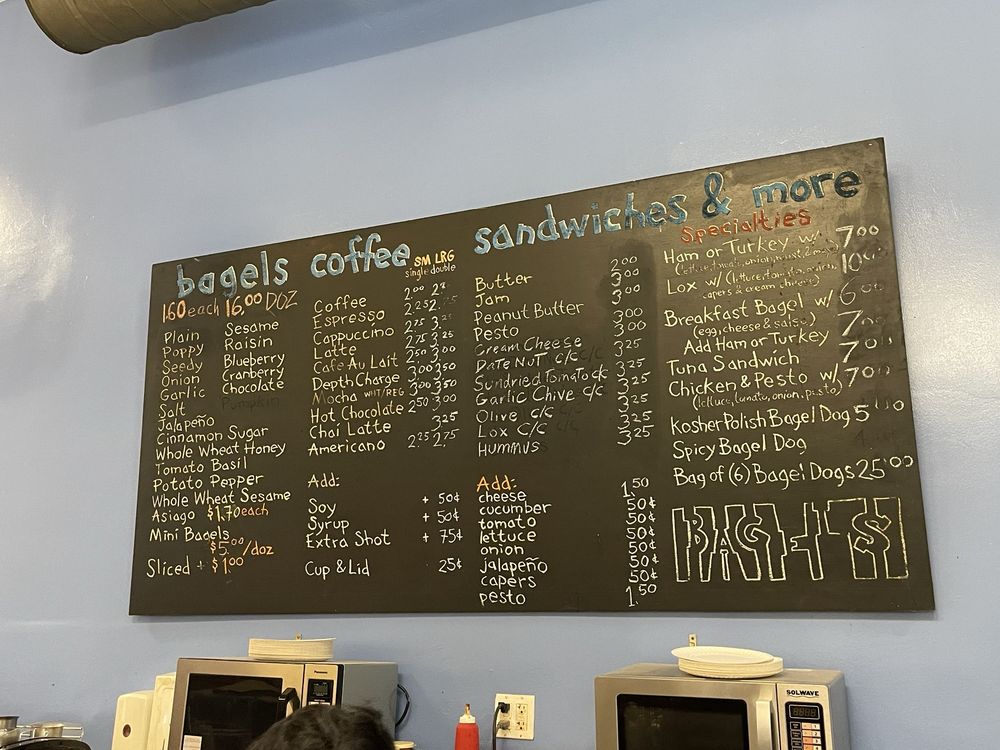 bagels
1.60 each 16.00 DOZ
Plain
Poppy
Seedy
Onion
Garlic
Salt
Jalapeño
Cinnamon Sugar
Whole Wheat Honey
Tomato Basil
Potato Pepper
Whole Wheat Sesame
Asiago $1.70 each
Mini Bagels
$5.00/doz
Sliced + $1.00
Sesame
Raisin
Blueberry
Cranberry
Chocolate
Pumpkin
coffee
SM LRG
single double
Coffee 2.00
Espresso 2.25 2.75
Cappuccino 2.75 3.25
Latte 2.75 3.25
Cafe Au Lait 2.50 3.00
Depth Charge 3.00 3.50
Mocha WHT/REG 3.00 3.50
Hot Chocolate 2.50 3.00
Chai Latte 3.25
Americano 2.25 2.75
Add:
Soy + 50¢
Syrup + 50¢
Extra Shot + 75¢
Cup & Lid 25¢
sandwiches & more
Butter 2.00
Jam 3.00
Peanut Butter 3.00
Pesto 3.00
Cream Cheese 3.00
Date Nut c/c 3.25
Sundried Tomato c/c 3.25
Garlic Chive c/c 3.25
Olive c/c 3.25
Lox c/c 3.25
Hummus 3.25
Add:
cheese 1.50
cucumber 50¢
tomato 50¢
lettuce 50¢
onion 50¢
jalapeño 50¢
capers 50¢
pesto 1.50
Specialties
Ham or Turkey w/ 7.00
(lettuce, tomato, onion,
Lox w/ (lettuce, tomato, onion, 10.00
capers & cream cheese)
Breakfast Bagel w/ 6.00
(egg, cheese & salsa)
Add Ham or Turkey 7.00
Tuna Sandwich 7.00
Chicken & Pesto w/ 7.00
(lettuce, tomato, onion, pesto)
Kosher Polish Bagel Dog 5
Spicy Bagel Dog
Bag of (6) Bagel Dogs 25.00
BAGELS
Panasonic
SOLWAVE